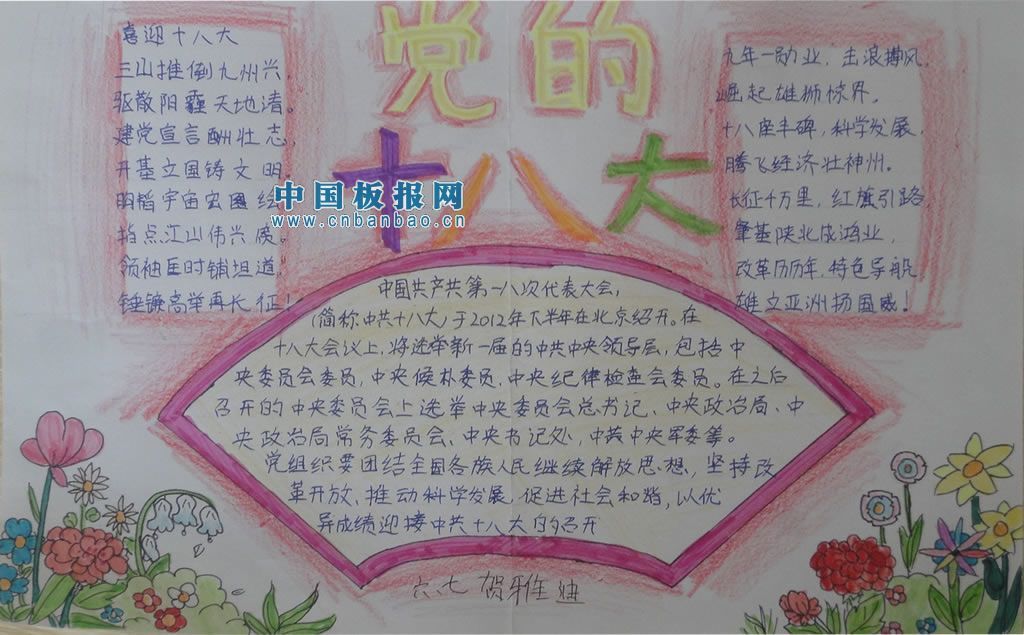 党的
十八大
喜迎十八大
三山推倒九州兴,
驱散阳霾天地清。
建党宣言酬壮志,
开基立国铸文明。
明韬宇宙宏图
指点江山伟兴
领袖匡时铺坦道,
锤镰高举再长征!
中国板报网
www.cnbanbao.cn
九年一勋业,击浪搏风,
崛起雄狮惊界。
十八座丰碑,科学发展,
腾飞经济壮神州。
长征千万里,红旗引路
肇基陕北成鸿业,
改革历历年,特色导航
雄立亚洲扬国威!
中国共产共第一八次代表大会,
(简称中共十八大)于2012年下半年在北京绍开。在
十八大会议上,将选举新一届的中共中央领导层,包括中
央委员会委员,中央候朴委员、中央纪律检查会委员。在之后
召开的中央委员会上选举中央委员会总书记、中央政治局、中
央政治局常务委员会、中央书记处,中共中央军委等。
党组织要团结全国各族人民继续解放思想,坚持改
革开放、推动科学发展,促进社会和谐,以优
异成绩迎接中共十八大的召开
六、七 贺雅迪